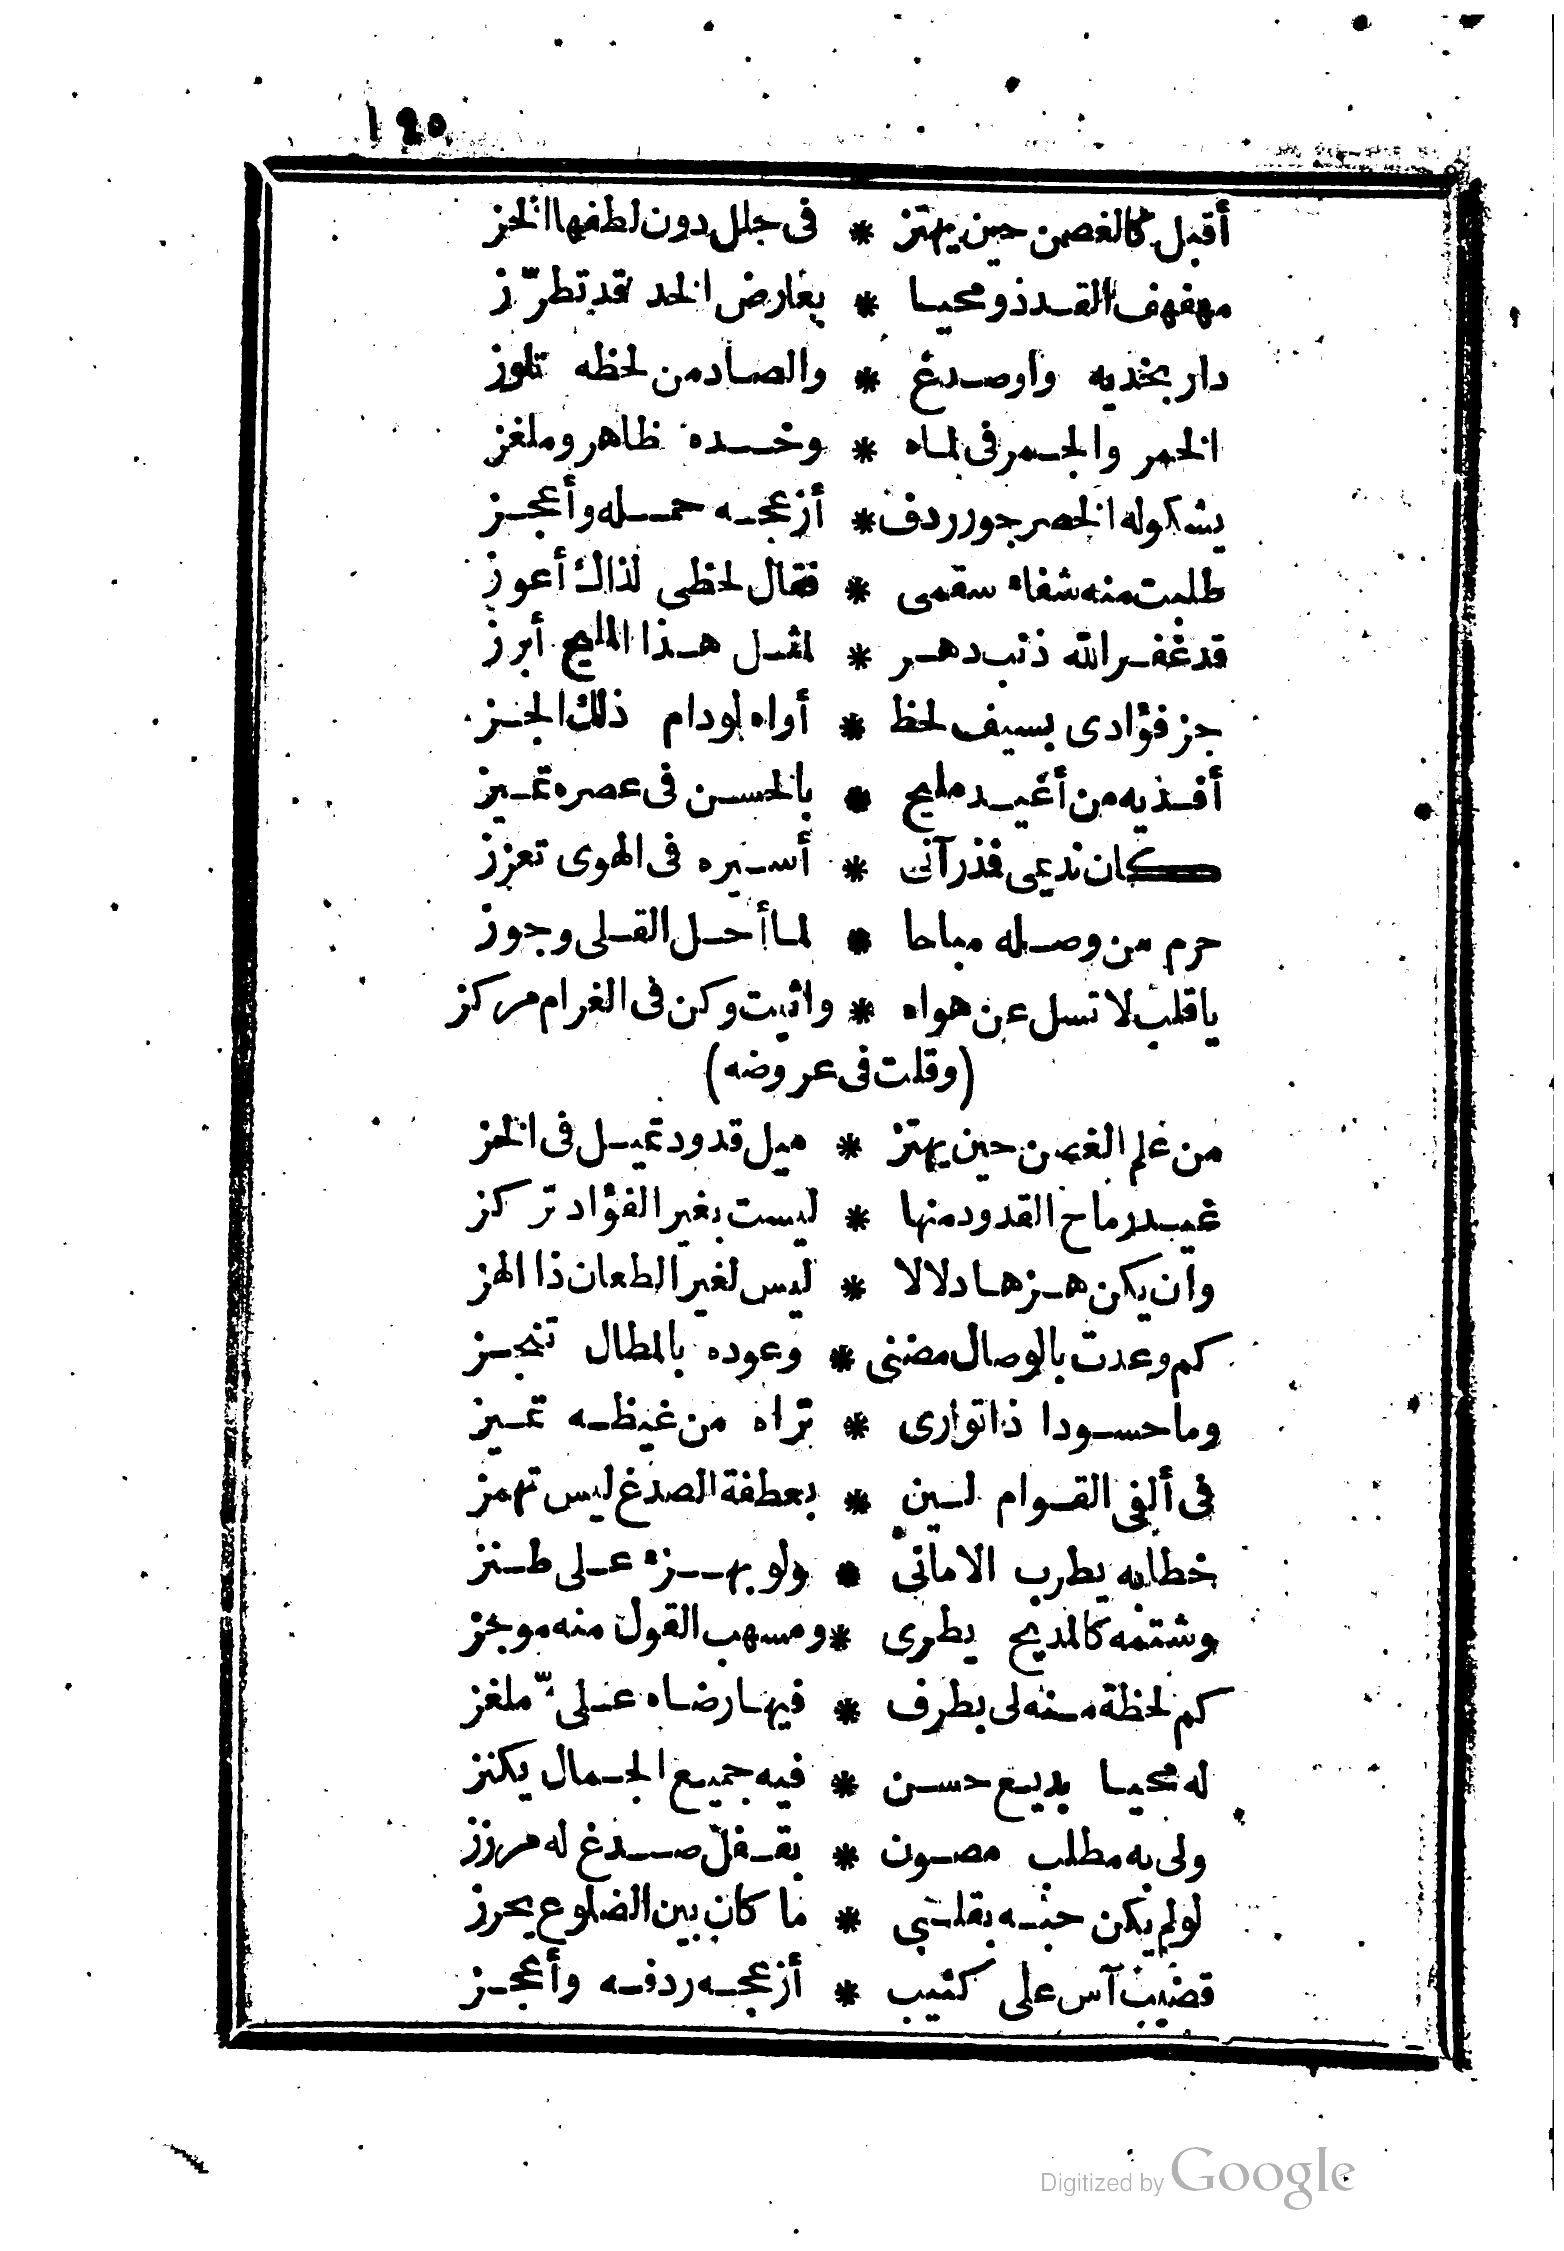 ١٤٥
أقبل كالغصن حين يهتز * فى حلل دون لطفها الخز
مهفهف القد ذو محيا * بعارض الخد قد تطرّز
دار بخديه واو صدغ * والصاد من لحظه تلوز
الخمر والجمر فى لماه * وخده ظاهر وملغز
يشكو له الخصر جور ردف * أزعجه حمله وأعجز
طلبت منه شفاء سقمى * فقال لحظى لذاك أعوز
قد غفر الله ذنب دهر * لمثل هذا المليح أبرز
جز فؤادى بسيف لحظ * أواه لو دام ذلك الجز
أفديه من أغيد مليح * بالحسن فى عصره تميز
كان نديمى فذ رآنى * أسيره فى الهوى تعزز
حرم من وصله مباحا * لما أحل القلى وجوز
يا قلب لا تسل عن هواه * واثبت وكن فى الغرام مركز
(وقلت فى عروضه)
من علم الغصن حين يهتز * ميل قدود تميل فى الخز
غيد رماح القدود منها * ليست بغير الفؤاد تركز
وان يكن هزها دلالا * ليس لغير الطعان ذا الهز
كم وعدت بالوصال مضنى * وعوده بالمطال تنجز
وما حسودا ذا توارى * تراه من غيظه تميز
فى ألفى القوام لين * بعطفة الصدغ ليس تهمز
خطابه يطرب الامانى * ولو بهزء على طنز
وشتمه كالمديح يطرى * ومسهب القول منه موجز
كم لحظة منه لى بطرف * فيها رضاه علىّ ملغز
له محيا بديع حسن * فيه جميع الجمال يكنز
ولى به مطلب مصون * بقفل صدغ له مرزز
لو لم يكن حبه بقلبى * ما كان بين الضلوع يحرز
قضيب آس على كثيب * أزعجه ردفه وأعجز
Digitized by Google